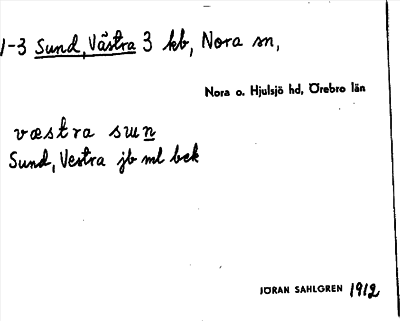 1-3 Sund, Västra 3 kb, Nora sn,
Nora o. Hjulsjö hd, Örebro län
væstra sun
Sund, Vestra jb ml bek
JÖRAN SAHLGREN 1912